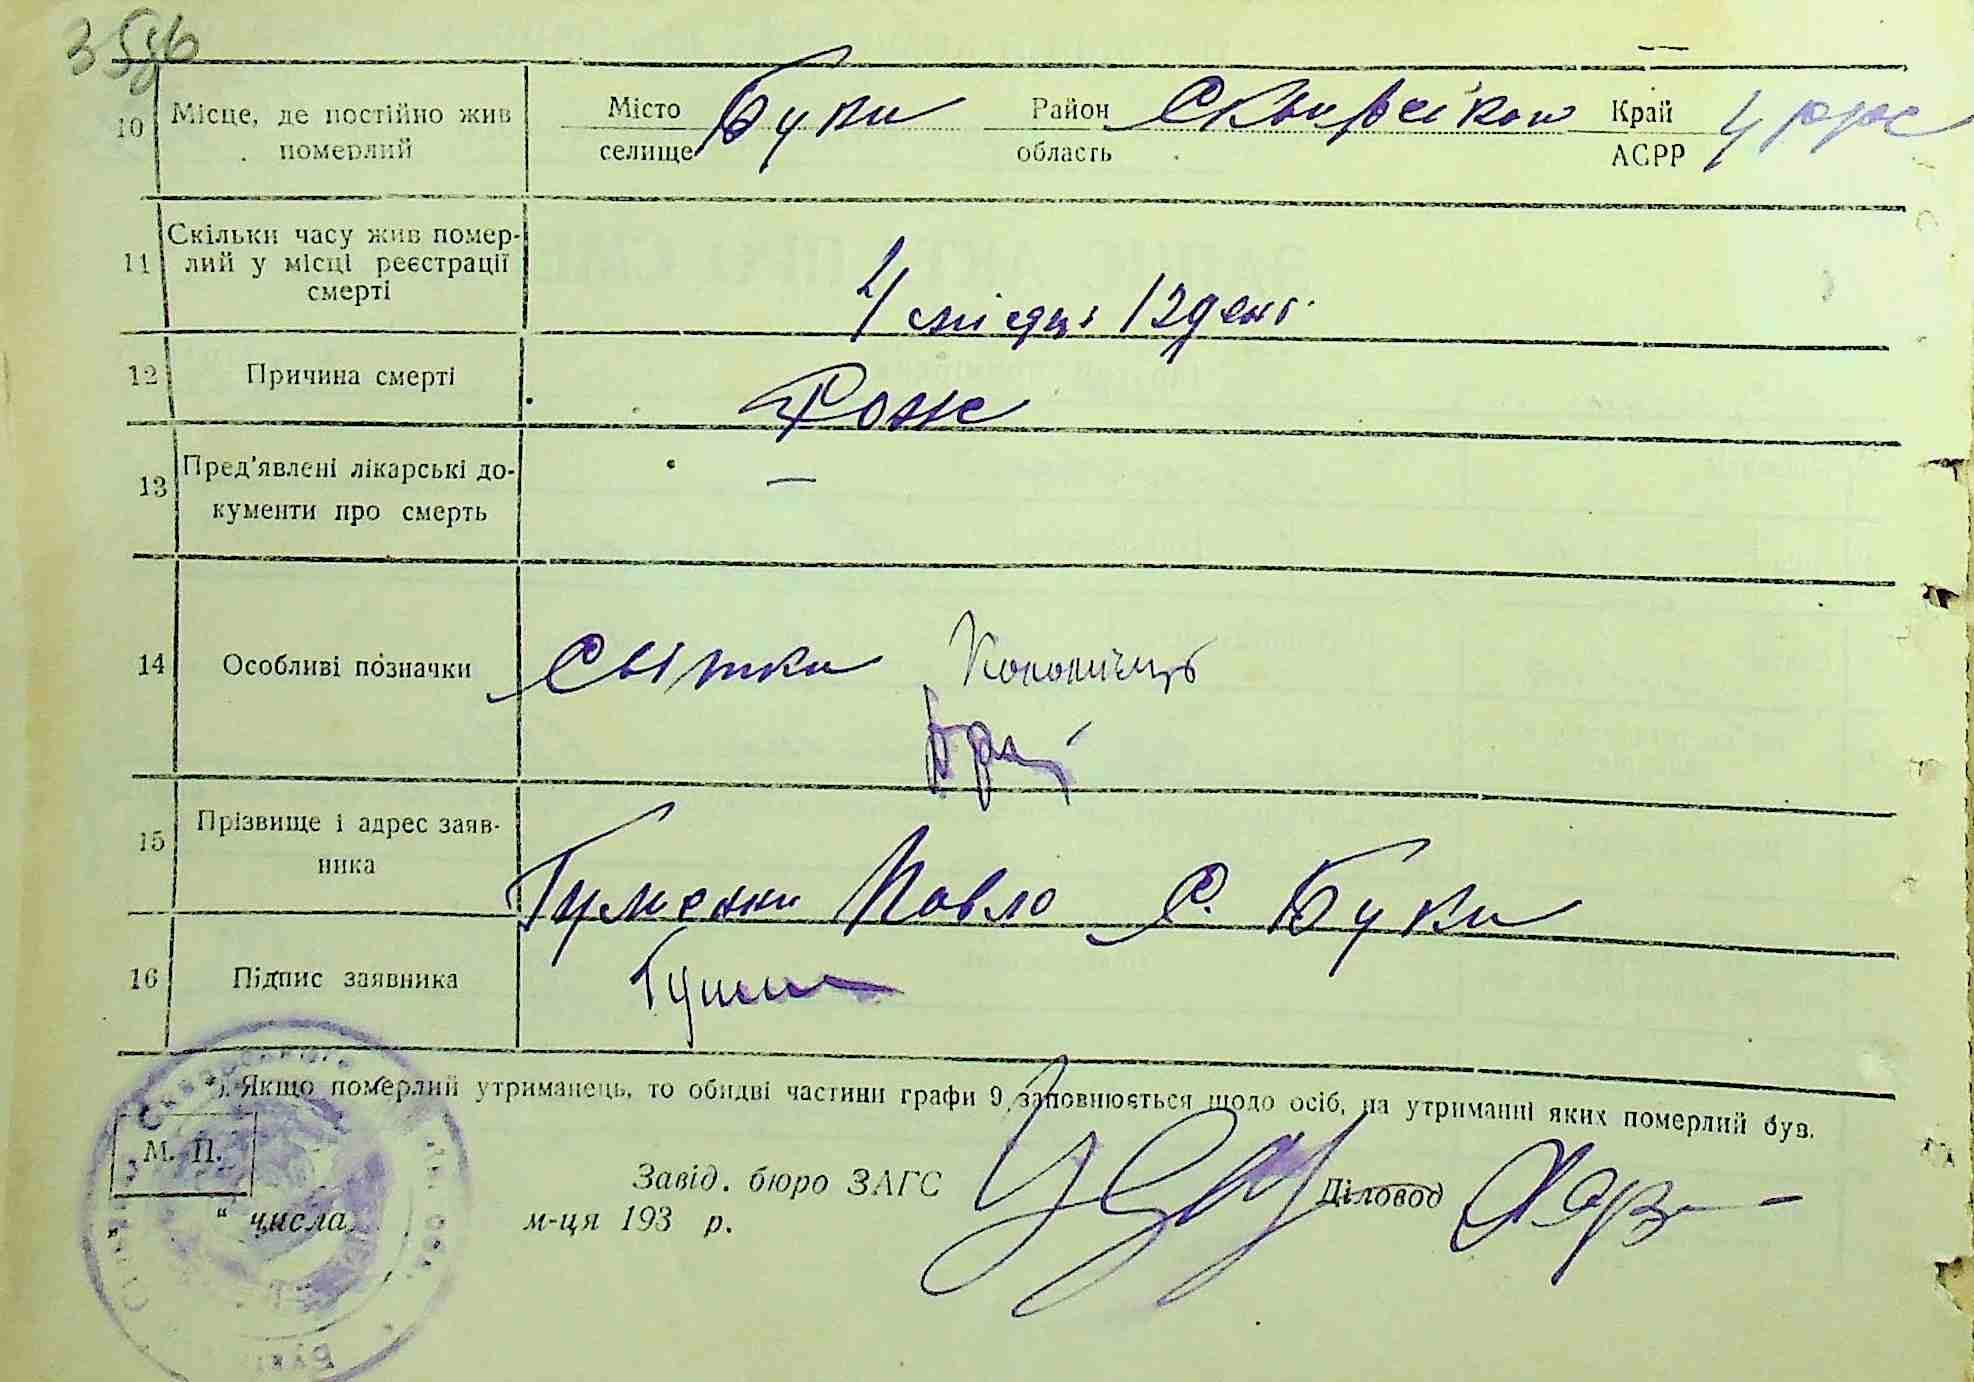 10 Місце, де постійно жив
померлий
Місто
селище Буки Район
область Сквирський Край
АСРР УРРС
11 Скільки часу жив помер-
лий у місці реєстрації
смерті
4 місяці 12 дені
12 Причина смерті
Рожс
13 Пред'явлені лікарські до-
кументи про смерть
—
14 Особливі позначки
Свідки
15 Прізвище і адрес заяв-
ника
Гуменни Павло С. Буки
16 Підпис заявника
*) Якщо померлий утриманець, то обидві частини графи 9 заповнюється щодо осіб, на утриманні яких померлий був.
М. П.
Завід. бюро ЗАГС
Діловод
" " числа м-ця 193 р.